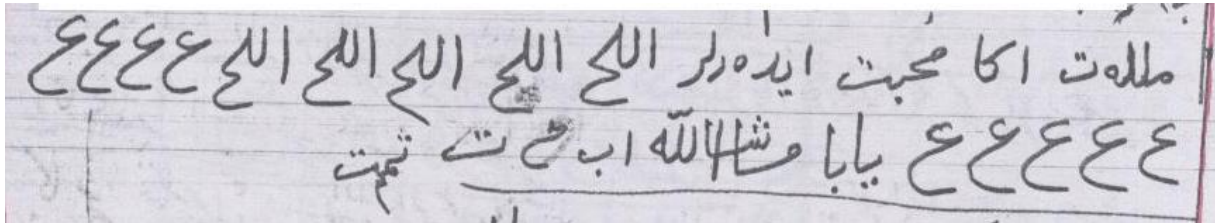 مللەت اكا محبت ايدەرلر اللح اللح اللح اللح اللح ع ع ع ع
ع ع ع ع ع يابا وشاالله اب ح ت تمت